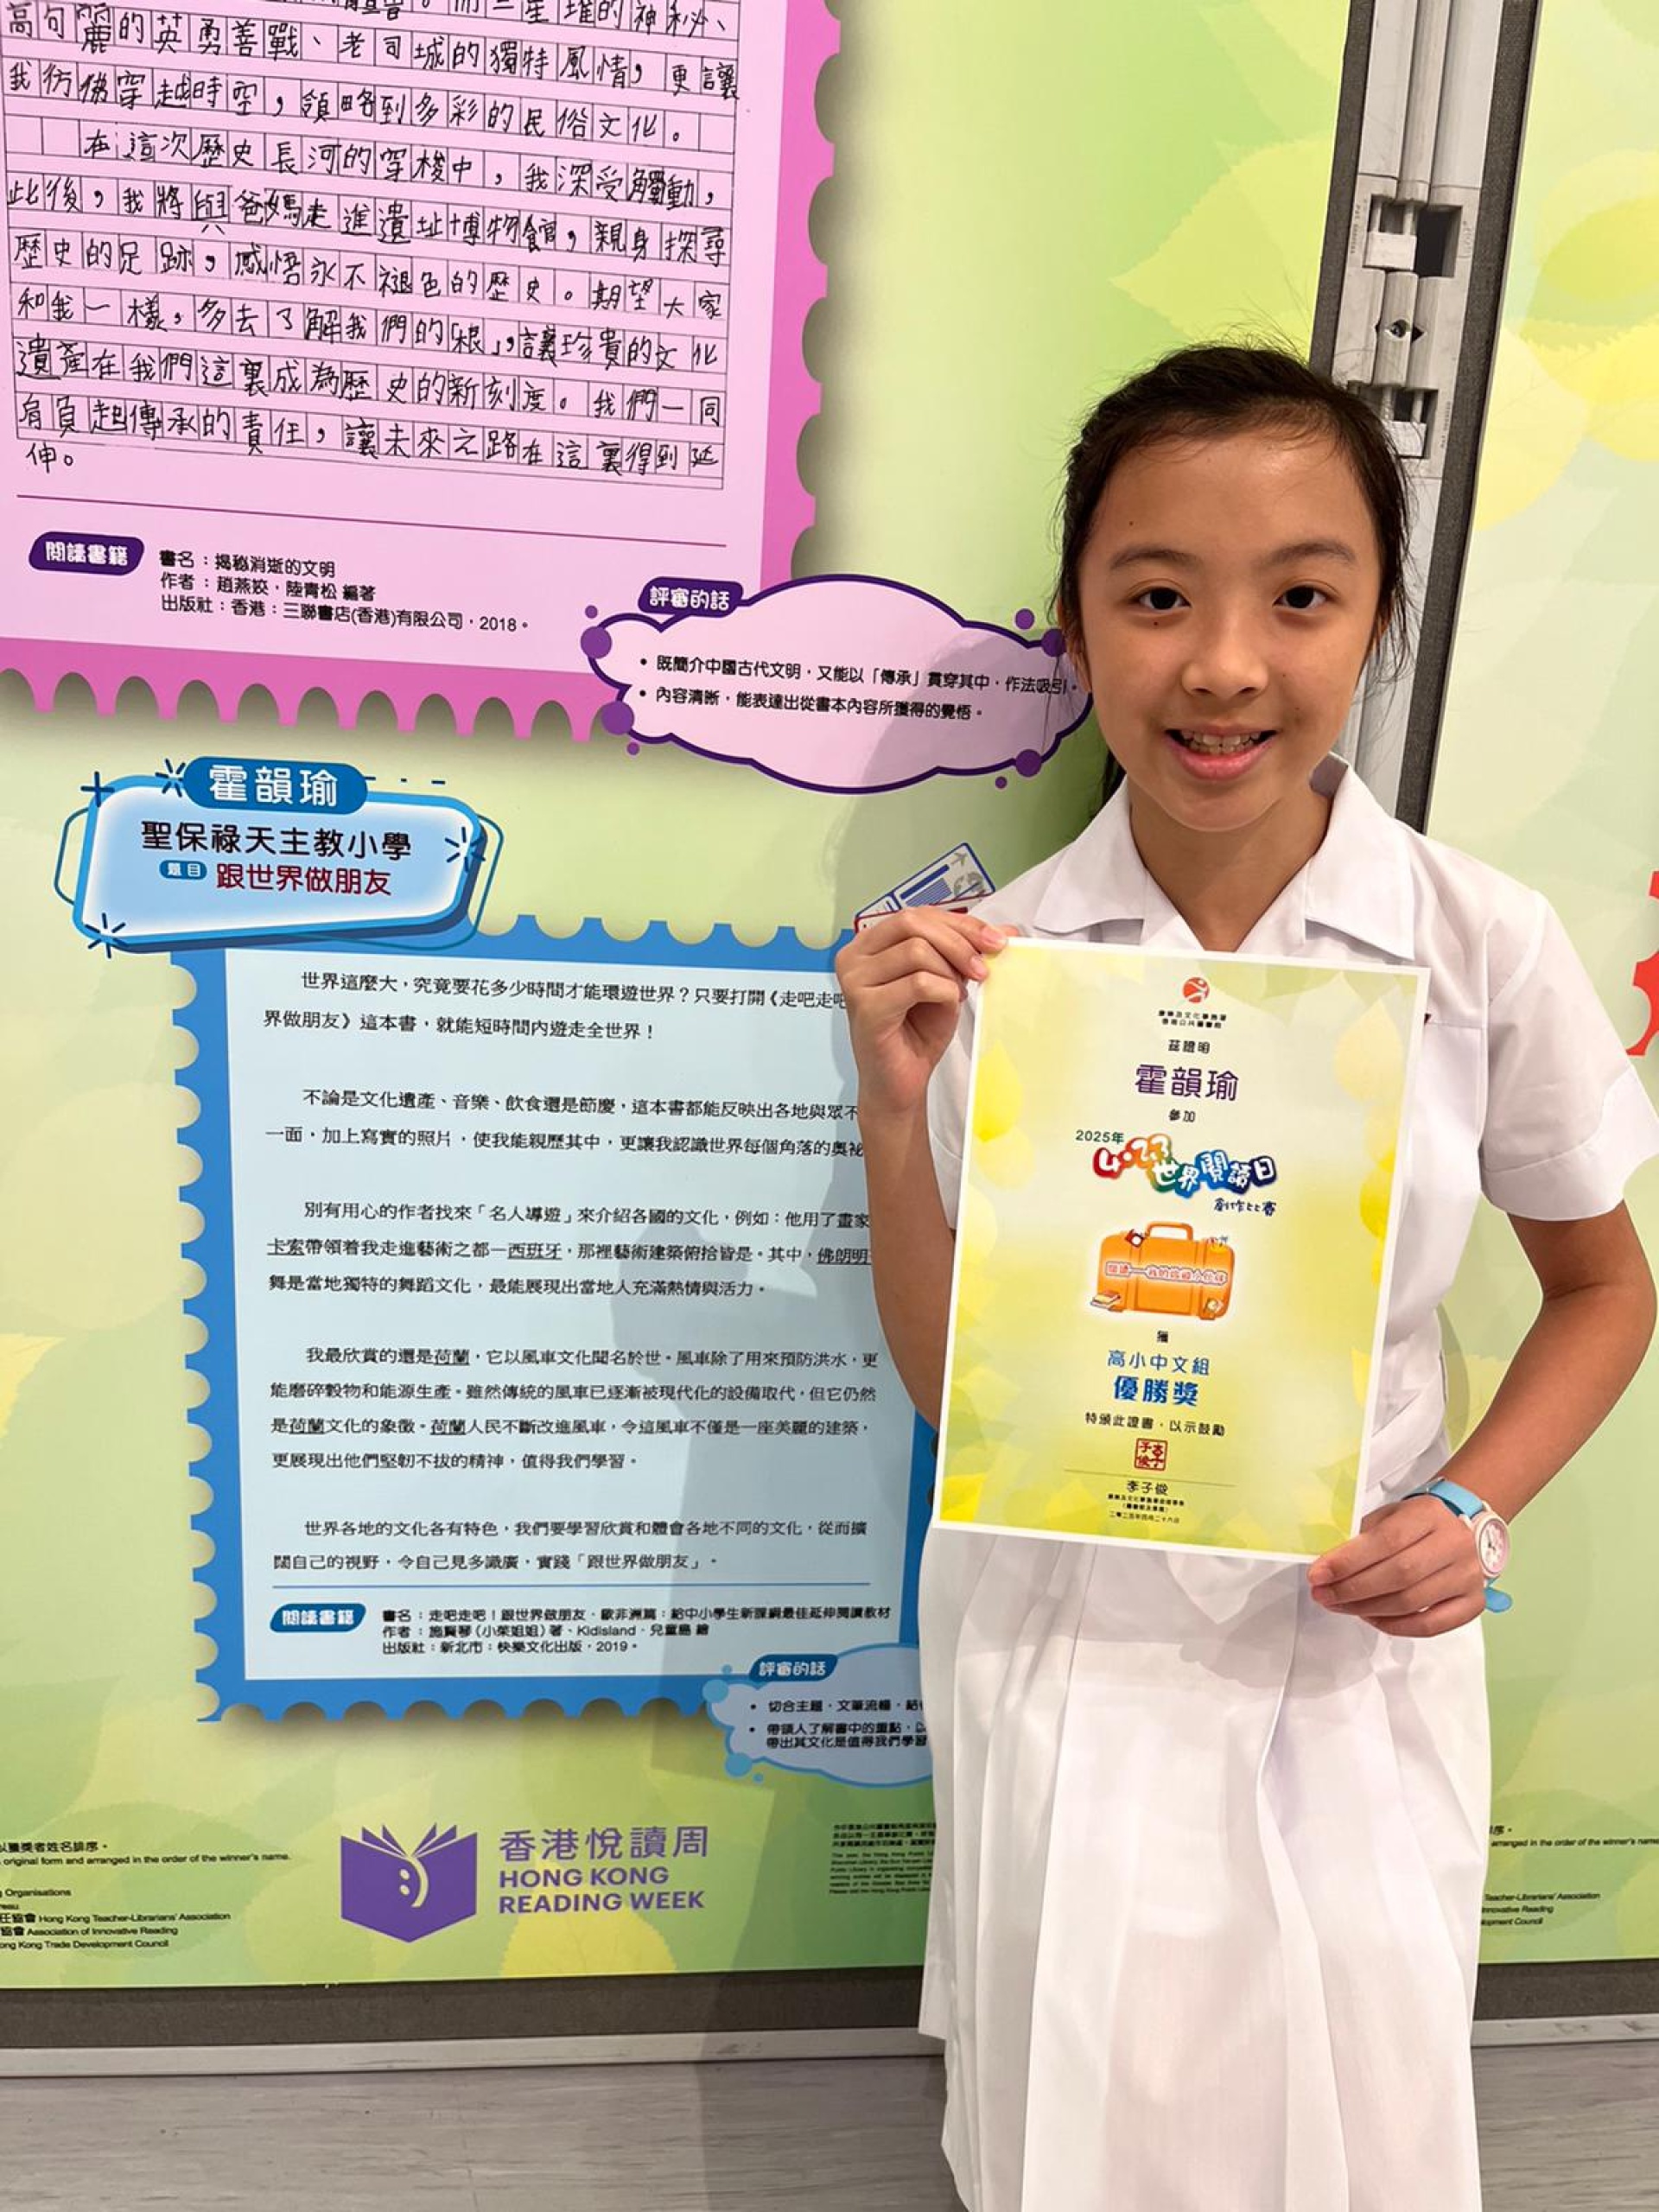 高句麗的英勇善戰、老司城的獨特風情，更讓
我彷彿穿越時空，領略到多彩的民俗文化。
在這次歷史長河的穿梭中，我深受觸動，
此後，我將與爸媽走進遺址博物館，親身探尋
歷史的足跡，感悟永不褪色的歷史。期望大家
和我一樣，多去了解我們的「根」，讓珍貴的文化
遺產在我們這裏成為歷史的新刻度。我們一同
肩負起傳承的責任，讓未來之路在這裏得到延
伸。
閱讀書籍
書名：揭秘消逝的文明
作者：趙燕姣，陸青松 編著
出版社：香港：三聯書店(香港)有限公司，2018。
評審的話
• 既簡介中國古代文明，又能以「傳承」貫穿其中，作法吸引。
• 內容清晰，能表達出從書本內容所獲得的覺悟。
霍韻瑜
聖保祿天主教小學
題目 跟世界做朋友
世界這麼大，究竟要花多少時間才能環遊世界？只要打開《走吧走吧
界做朋友》這本書，就能短時間內遊走全世界！
不論是文化遺產、音樂、飲食還是節慶，這本書都能反映出各地與眾不
一面，加上寫實的照片，使我能親歷其中，更讓我認識世界每個角落的奧祕
別有用心的作者找來「名人導遊」來介紹各國的文化，例如：他用了畫家
卡索帶領着我走進藝術之都—西班牙，那裡藝術建築俯拾皆是。其中，佛朗明
舞是當地獨特的舞蹈文化，最能展現出當地人充滿熱情與活力。
我最欣賞的還是荷蘭，它以風車文化聞名於世。風車除了用來預防洪水，更
能磨碎穀物和能源生產。雖然傳統的風車已逐漸被現代化的設備取代，但它仍然
是荷蘭文化的象徵。荷蘭人民不斷改進風車，令這風車不僅是一座美麗的建築，
更展現出他們堅韌不拔的精神，值得我們學習。
世界各地的文化各有特色，我們要學習欣賞和體會各地不同的文化，從而擴
闊自己的視野，令自己見多識廣，實踐「跟世界做朋友」。
閱讀書籍
書名：走吧走吧！跟世界做朋友．歐非洲篇：給中小學生新課綱最佳延伸閱讀教材
作者：施賢琴（小茱姐姐）著、Kidisland．兒童島 繪
出版社：新北市：快樂文化出版，2019。
評審的話
• 切合主題，文筆流暢，結
• 帶領人了解書中的重點，以
帶出其文化是值得我們學習
香港悅讀周
HONG KONG
READING WEEK
以獲獎者姓名排序。
original form and arranged in the order of the winner's name.
Organisations
Hong Kong Teacher-Librarians' Association
Association of Innovative Reading
ong Kong Trade Development Council
康樂及文化事務署
香港公共圖書館
茲證明
霍韻瑜
參加
2025年
4·23世界閱讀日
創作比賽
閱讀—我的旅遊小伙伴
獲
高小中文組
優勝獎
特頒此證書，以示鼓勵
李子俊
二零二五年四月二十六日
arranged in the order of the winner's name
Teacher-Librarians' Association
nnovative Reading
elopment Council